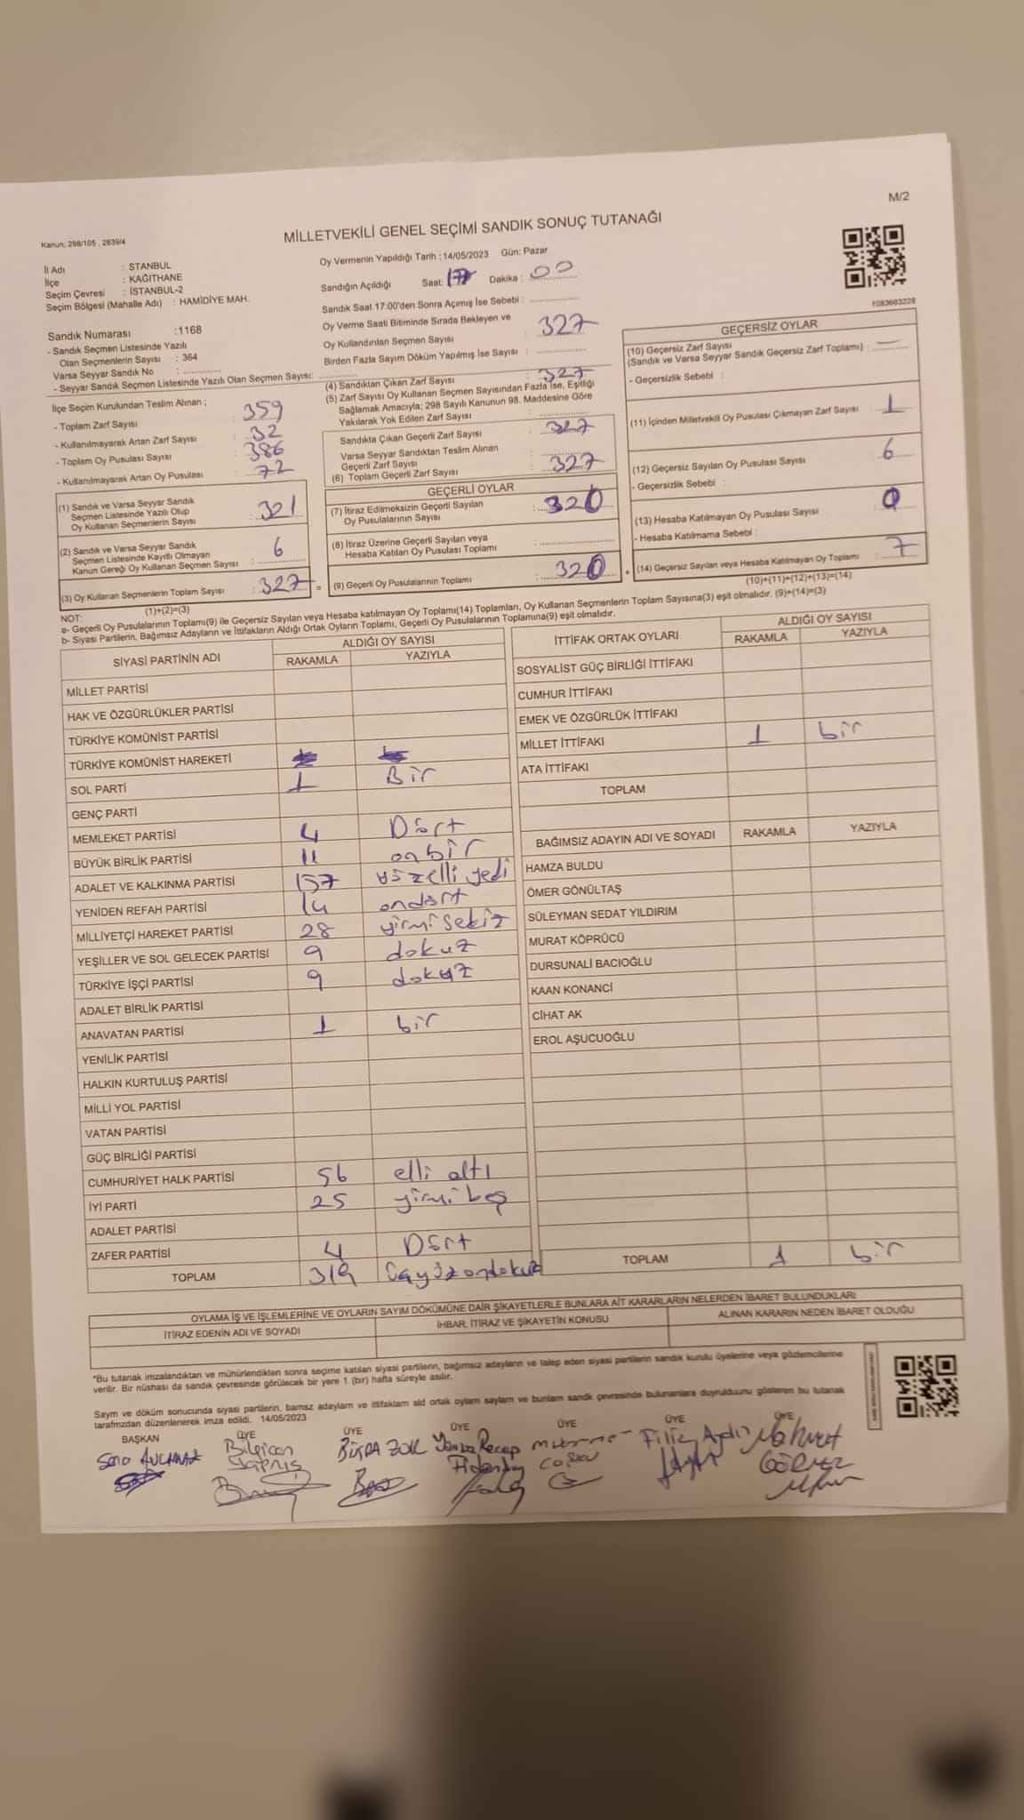 M/2
Kanun: 298/105 , 2839/4
MİLLETVEKİLİ GENEL SEÇİMİ SANDIK SONUÇ TUTANAĞI
İl Adı : STANBUL
İlçe : KAĞITHANE
Seçim Çevresi : İSTANBUL-2
Seçim Bölgesi (Mahalle Adı) : HAMİDİYE MAH.
Sandık Numarası :1168
- Sandık Seçmen Listesinde Yazılı
Olan Seçmenlerin Sayısı : 364
Varsa Seyyar Sandık No :
- Seyyar Sandık Seçmen Listesinde Yazılı Olan Seçmen Sayısı:
Oy Vermenin Yapıldığı Tarih : 14/05/2023 Gün: Pazar
Sandığın Açıldığı Saat: 17 Dakika : 00
Sandık Saat 17:00'den Sonra Açımış İse Sebebi :
Oy Verme Saati Bitiminde Sırada Bekleyen ve
Oy Kullandırılan Seçmen Sayısı : 327
Birden Fazla Sayım Döküm Yapılmış İse Sayısı :
1083603228
İlçe Seçim Kurulundan Teslim Alınan ;
- Toplam Zarf Sayısı : 359
- Kullanılmayarak Artan Zarf Sayısı : 32
- Toplam Oy Pusulası Sayısı : 386
- Kullanılmayarak Artan Oy Pusulası : 72
(1) Sandık ve Varsa Seyyar Sandık
Seçmen Listesinde Yazılı Olup
Oy Kullanan Seçmenlerin Sayısı : 321
(2) Sandık ve Varsa Seyyar Sandık
Seçmen Listesinde Kayıtlı Olmayan
Kanun Gereği Oy Kullanan Seçmen Sayısı : 6
(3) Oy Kullanan Seçmenlerin Toplam Sayısı : 327
(1)+(2)=(3)
(4) Sandıktan Çıkan Zarf Sayısı : 327
(5) Zarf Sayısı Oy Kullanan Seçmen Sayısından Fazla İse, Eşitliği
Sağlamak Amacıyla; 298 Sayılı Kanunun 98. Maddesine Göre
Yakılarak Yok Edilen Zarf Sayısı :
Sandıkta Çıkan Geçerli Zarf Sayısı : 327
Varsa Seyyar Sandıktan Teslim Alınan
Geçerli Zarf Sayısı :
(6) Toplam Geçerli Zarf Sayısı : 327
GEÇERLİ OYLAR
(7) İtiraz Edilmeksizin Geçerli Sayılan
Oy Pusulalarının Sayısı : 320
(8) İtiraz Üzerine Geçerli Sayılan veya
Hesaba Katılan Oy Pusulası Toplamı :
(9) Geçerli Oy Pusulalarının Toplamı : 320
GEÇERSİZ OYLAR
(10) Geçersiz Zarf Sayısı
(Sandık ve Varsa Seyyar Sandık Geçersiz Zarf Toplamı) : —
- Geçersizlik Sebebi :
(11) İçinden Milletvekili Oy Pusulası Çıkmayan Zarf Sayısı : 1
(12) Geçersiz Sayılan Oy Pusulası Sayısı : 6
- Geçersizlik Sebebi :
(13) Hesaba Katılmayan Oy Pusulası Sayısı : 0
- Hesaba Katılmama Sebebi :
(14) Geçersiz Sayılan veya Hesaba Katılmayan Oy Toplamı : 7
(10)+(11)+(12)+(13)=(14)
NOT:
a- Geçerli Oy Pusulalarının Toplamı(9) ile Geçersiz Sayılan veya Hesaba katılmayan Oy Toplamı(14) Toplamları, Oy Kullanan Seçmenlerin Toplam Sayısına(3) eşit olmalıdır. (9)+(14)=(3)
b- Siyasi Partilerin, Bağımsız Adayların ve İttifakların Aldığı Ortak Oyların Toplamı, Geçerli Oy Pusulalarının Toplamına(9) eşit olmalıdır.
SİYASİ PARTİNİN ADI ALDIĞI OY SAYISI
RAKAMLA YAZIYLA
MİLLET PARTİSİ
HAK VE ÖZGÜRLÜKLER PARTİSİ
TÜRKİYE KOMÜNİST PARTİSİ
TÜRKİYE KOMÜNİST HAREKETİ
SOL PARTİ 1 Bir
GENÇ PARTİ
MEMLEKET PARTİSİ 4 Dört
BÜYÜK BİRLİK PARTİSİ 11 onbir
ADALET VE KALKINMA PARTİSİ 157 yüzelli yedi
YENİDEN REFAH PARTİSİ 14 ondört
MİLLİYETÇİ HAREKET PARTİSİ 28 yirmi sekiz
YEŞİLLER VE SOL GELECEK PARTİSİ 9 dokuz
TÜRKİYE İŞÇİ PARTİSİ 9 dokuz
ADALET BİRLİK PARTİSİ
ANAVATAN PARTİSİ 1 bir
YENİLİK PARTİSİ
HALKIN KURTULUŞ PARTİSİ
MİLLİ YOL PARTİSİ
VATAN PARTİSİ
GÜÇ BİRLİĞİ PARTİSİ
CUMHURİYET HALK PARTİSİ 56 elli altı
İYİ PARTİ 25 yirmi beş
ADALET PARTİSİ
ZAFER PARTİSİ 4 Dört
TOPLAM 319
İTTİFAK ORTAK OYLARI ALDIĞI OY SAYISI
RAKAMLA YAZIYLA
SOSYALİST GÜÇ BİRLİĞİ İTTİFAKI
CUMHUR İTTİFAKI
EMEK VE ÖZGÜRLÜK İTTİFAKI
MİLLET İTTİFAKI 1 bir
ATA İTTİFAKI
TOPLAM
BAĞIMSIZ ADAYIN ADI VE SOYADI RAKAMLA YAZIYLA
HAMZA BULDU
ÖMER GÖNÜLTAŞ
SÜLEYMAN SEDAT YILDIRIM
MURAT KÖPRÜCÜ
DURSUNALİ BACIOĞLU
KAAN KONANCİ
CİHAT AK
EROL AŞUCUOĞLU
TOPLAM 1 bir
OYLAMA İŞ VE İŞLEMLERİNE VE OYLARIN SAYIM DÖKÜMÜNE DAİR ŞİKAYETLERLE BUNLARA AİT KARARLARIN NELERDEN İBARET BULUNDUKLARI
İTİRAZ EDENİN ADI VE SOYADI İHBAR, İTİRAZ VE ŞİKAYETİN KONUSU ALINAN KARARIN NEDEN İBARET OLDUĞU
*Bu tutanak imzalandıktan ve mühürlendikten sonra seçime katılan siyasi partilerin, bağımsız adayların ve talep eden siyasi partilerin sandık kurulu üyelerine veya gözlemcilerine
verilir. Bir nüshası da sandık çevresinde görülecek bir yere 1 (bir) hafta süreyle asılır.
Sayım ve döküm sonucunda siyasi partilerin, adayların ve ittifakların ortak oyların sayları ve bunların sandık çevresinde bulunanlara gösteren bu tutanak
tarafımızdan düzenlenerek imza edildi. 14/05/2023
BAŞKAN ÜYE ÜYE ÜYE ÜYE ÜYE ÜYE
Bilgican
Filiz Aydın
Mahmut